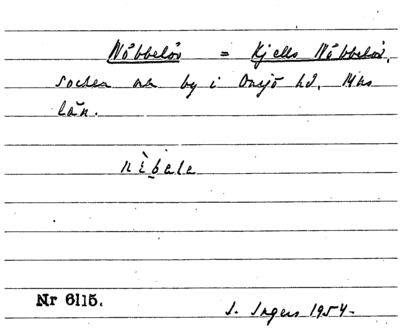 Nöbbelöv = Källs Nöbbelöv,
socken och by i Onsjö hd. Mhs
län.
nèbala
Nr 6115.
I. Ingers 1954.